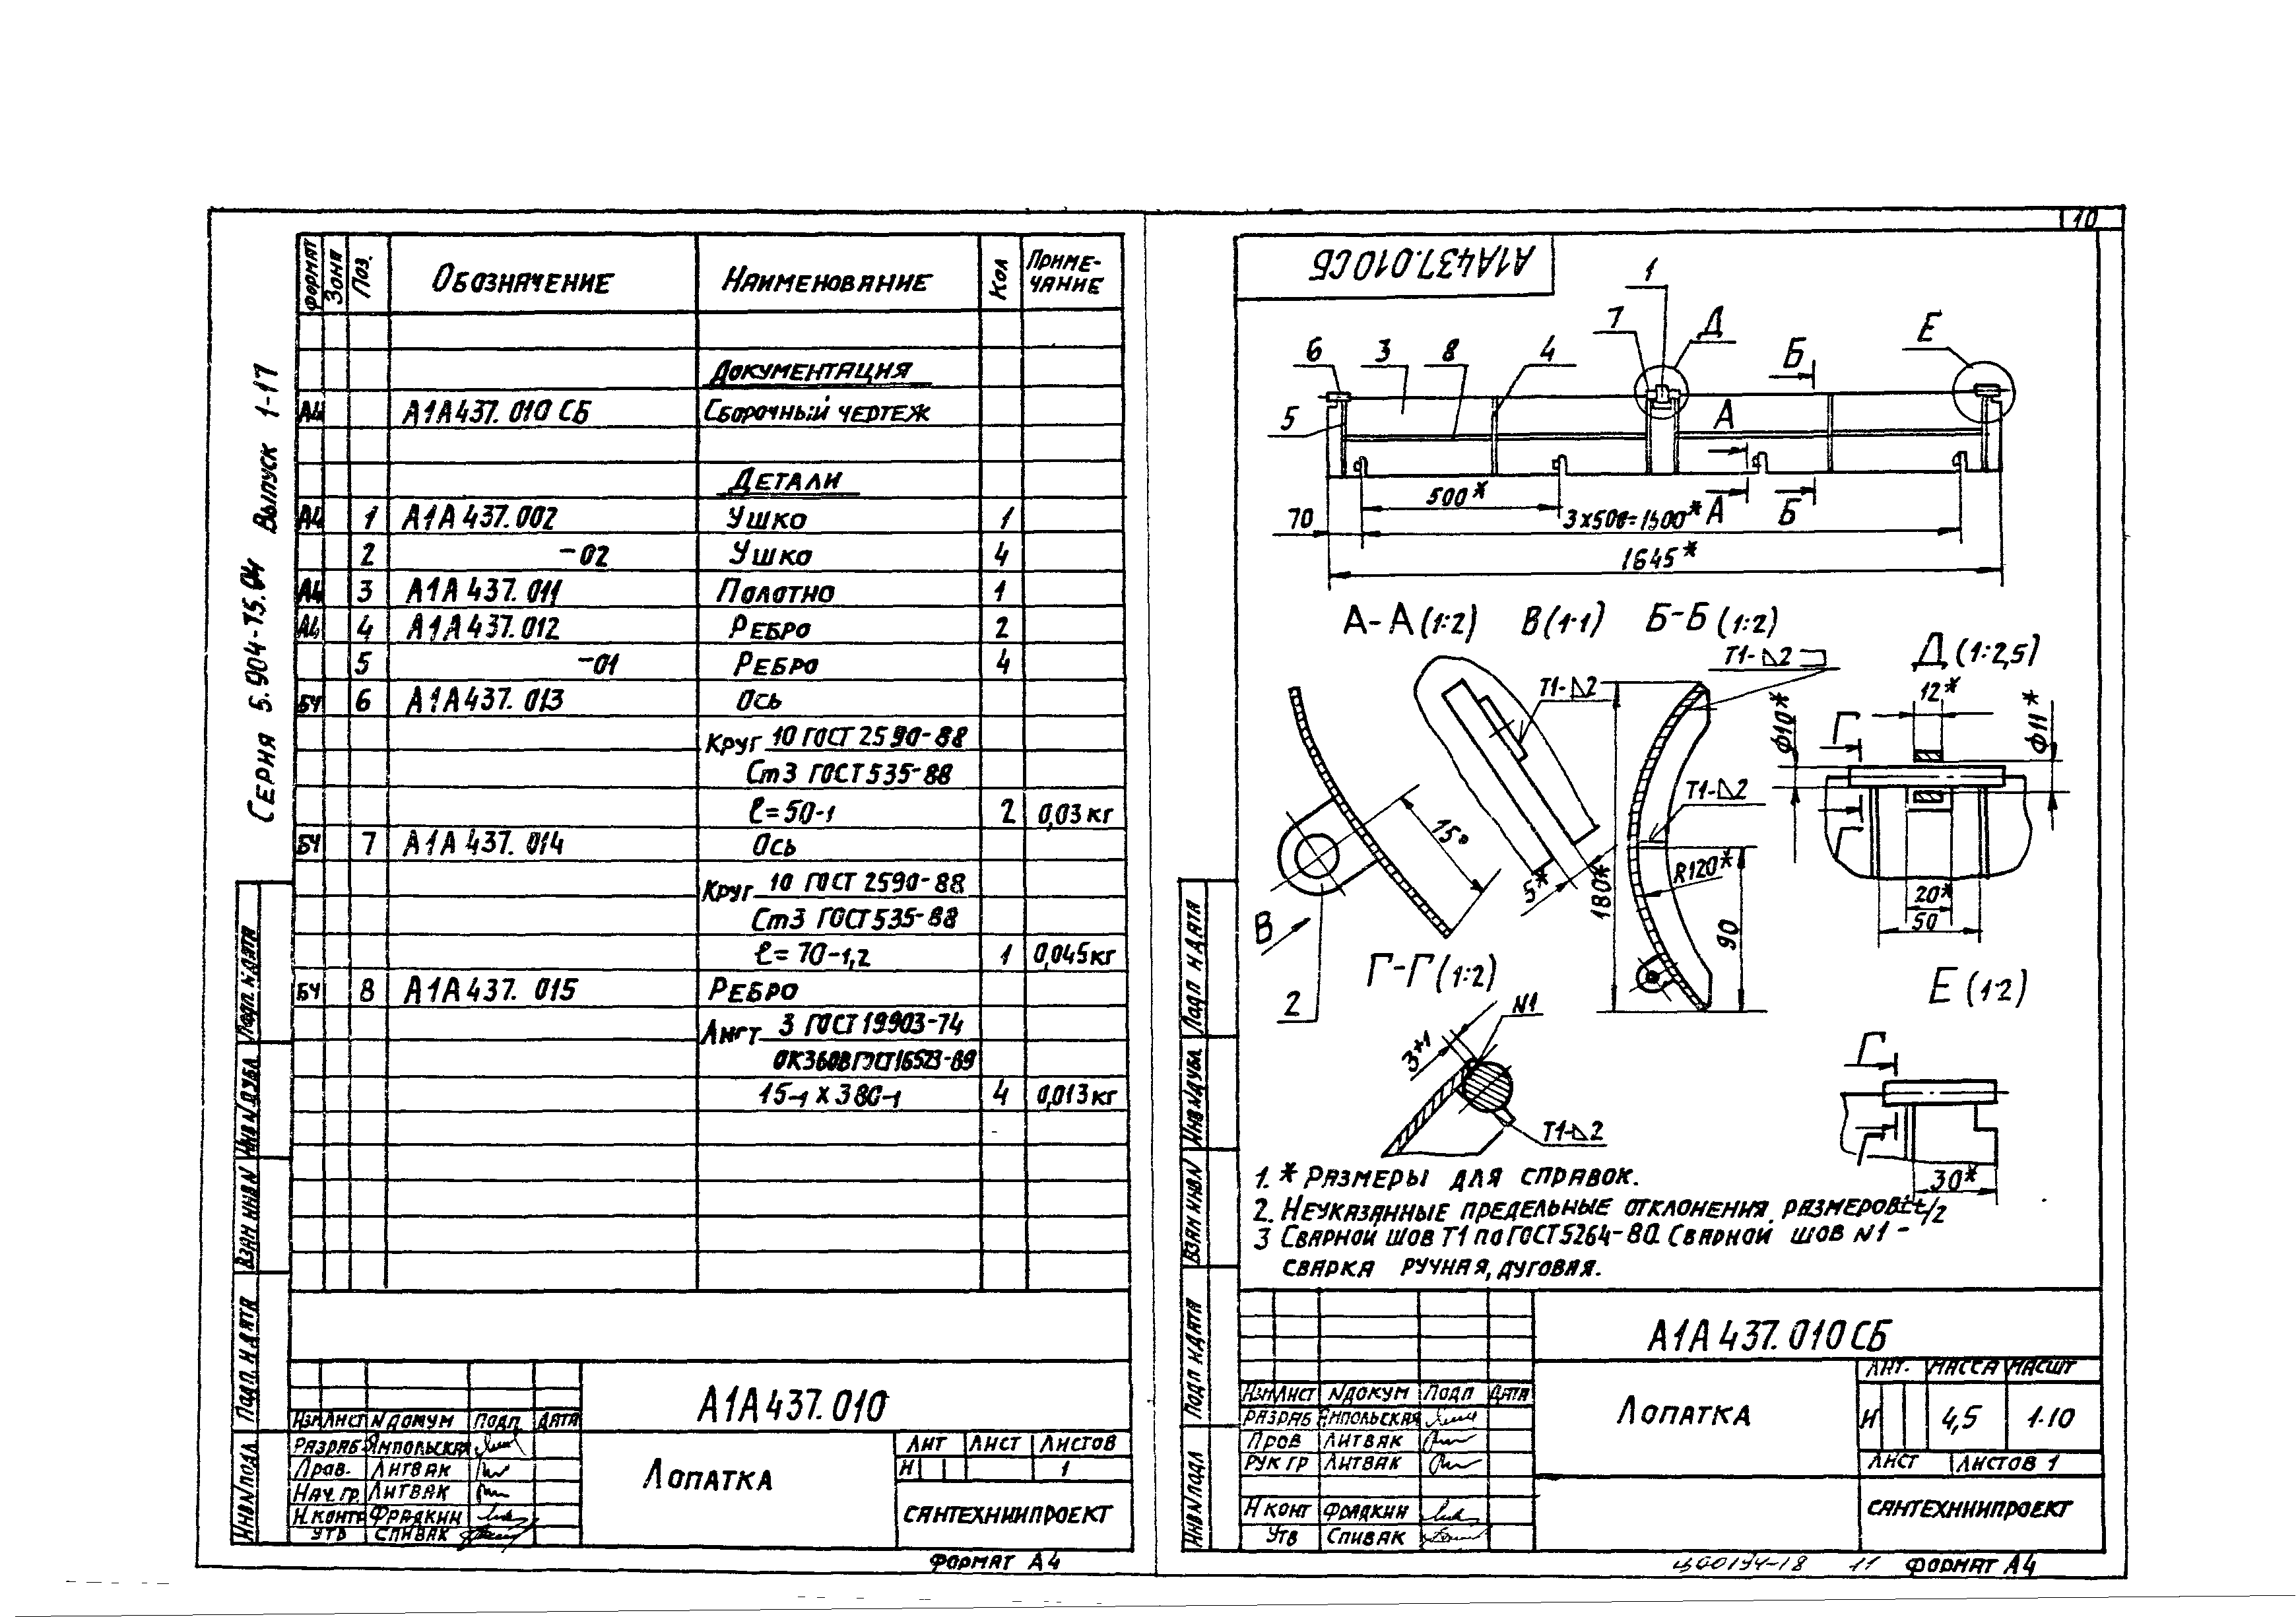 Серия 5.904-75.04 Выпуск 1-17
Формат Зона Поз. Обозначение Наименование Кол Приме-
чание
Документация
А4 А1А437.010 СБ Сборочный чертеж
Детали
А4 1 А1А437.002 Ушко 1
2 -02 Ушко 4
А4 3 А1А437.011 Полотно 1
А4 4 А1А437.012 Ребро 2
5 -01 Ребро 4
БЧ 6 А1А437.013 Ось
Круг 10 ГОСТ 2590-88
Ст3 ГОСТ 535-88
ℓ=50-1 2 0,03 кг
БЧ 7 А1А437.014 Ось
Круг 10 ГОСТ 2590-88
Ст3 ГОСТ 535-88
ℓ=70-1,2 1 0,045 кг
БЧ 8 А1А437.015 Ребро
Лист 3 ГОСТ 19903-74
ОК360В ГОСТ 16523-89
15-1 х 380-1 4 0,013 кг
Подп. и дата
Инв N дубл
Взам инв N
Подп. и дата
Инв N подл
А1А437.010
Изм Лист N докум Подп Дата
Разраб Ямпольская
Пров. Литвак
Нач. гр. Литвак
Н. контр Фрадкин
Утв Спивак
Лопатка
Лит Лист Листов
И 1
САНТЕХНИИПРОЕКТ
Формат А4
10
А1А437.010СБ
1
7 Д
6 3 8 4 Б Е
5 А
500*
70 3х500=1500* А Б
1645*
А-А (1:2) В (1:1) Б-Б (1:2) Д (1:2,5)
Т1-◺2
Т1-◺2
12*
Ф10* Г Ф11*
Т1-◺2
15*
5*
180*
R120*
90
Г
20*
50
В
2
Г-Г (1:2) Е (1:2)
N1
3+1
Т1-◺2
Г
Г
30*
1. * Размеры для справок.
2. Неуказанные предельные отклонения размеров ±t/2
3 Сварной шов Т1 по ГОСТ 5264-80. Сварной шов N1 -
сварка ручная, дуговая.
Подп и дата
Инв N дубл
Взам инв N
Подп и дата
Инв N подл
А1А437.010СБ
Изм Лист N докум Подп Дата
Разраб Ямпольская
Пров Литвак
Рук гр Литвак
Н конт Фрадкин
Утв Спивак
Лопатка
Лит. Масса Масшт
И 4,5 1:10
Лист Листов 1
САНТЕХНИИПРОЕКТ
ЦОО194-18 11 Формат А4